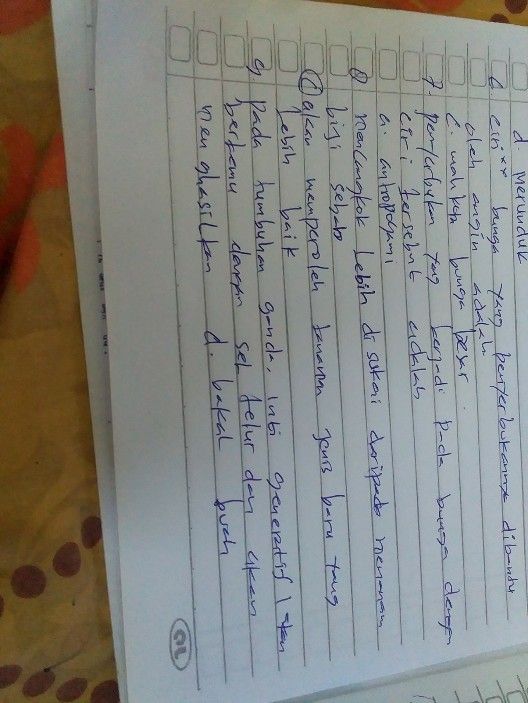 d. Merunduk
6 ciri** bunga yang penyerbukannya dibantu
oleh angin adalah
C. mahkota bunga besar.
7 penyerbukan yang terjadi pada bunga dengan
ciri tersebut adalah
a. antropogami
8 mencangkok lebih disukai daripada menanam
biji sebab
C akan memperoleh tanaman jenis baru yang
lebih baik
9 pada tumbuhan ganda, inti generatif 1 akan
bertemu dengan sel telur dan akan
menghasilkan d. bakal buah